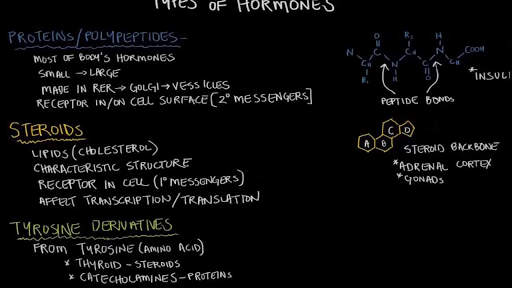 TYPES OF HORMONES
PROTEINS/POLYPEPTIDES-
MOST OF BODY'S HORMONES
SMALL → LARGE
MADE IN RER → GOLGI → VESSICLES
RECEPTOR IN/ON CELL SURFACE [2° MESSENGERS]
STEROIDS
LIPIDS (CHOLESTEROL)
CHARACTERISTIC STRUCTURE
RECEPTOR IN CELL (1° MESSENGERS)
AFFECT TRANSCRIPTION/TRANSLATION
TYROSINE DERIVATIVES
FROM TYROSINE (AMINO ACID)
* THYROID - STEROIDS
* CATECHOLAMINES - PROTEINS
O R₂ H
N C CH N COOH
CH N C CH
R₁ H O
* INSULI
PEPTIDE BONDS
A B C D
STEROID BACKBONE
* ADRENAL CORTEX
* GONADS